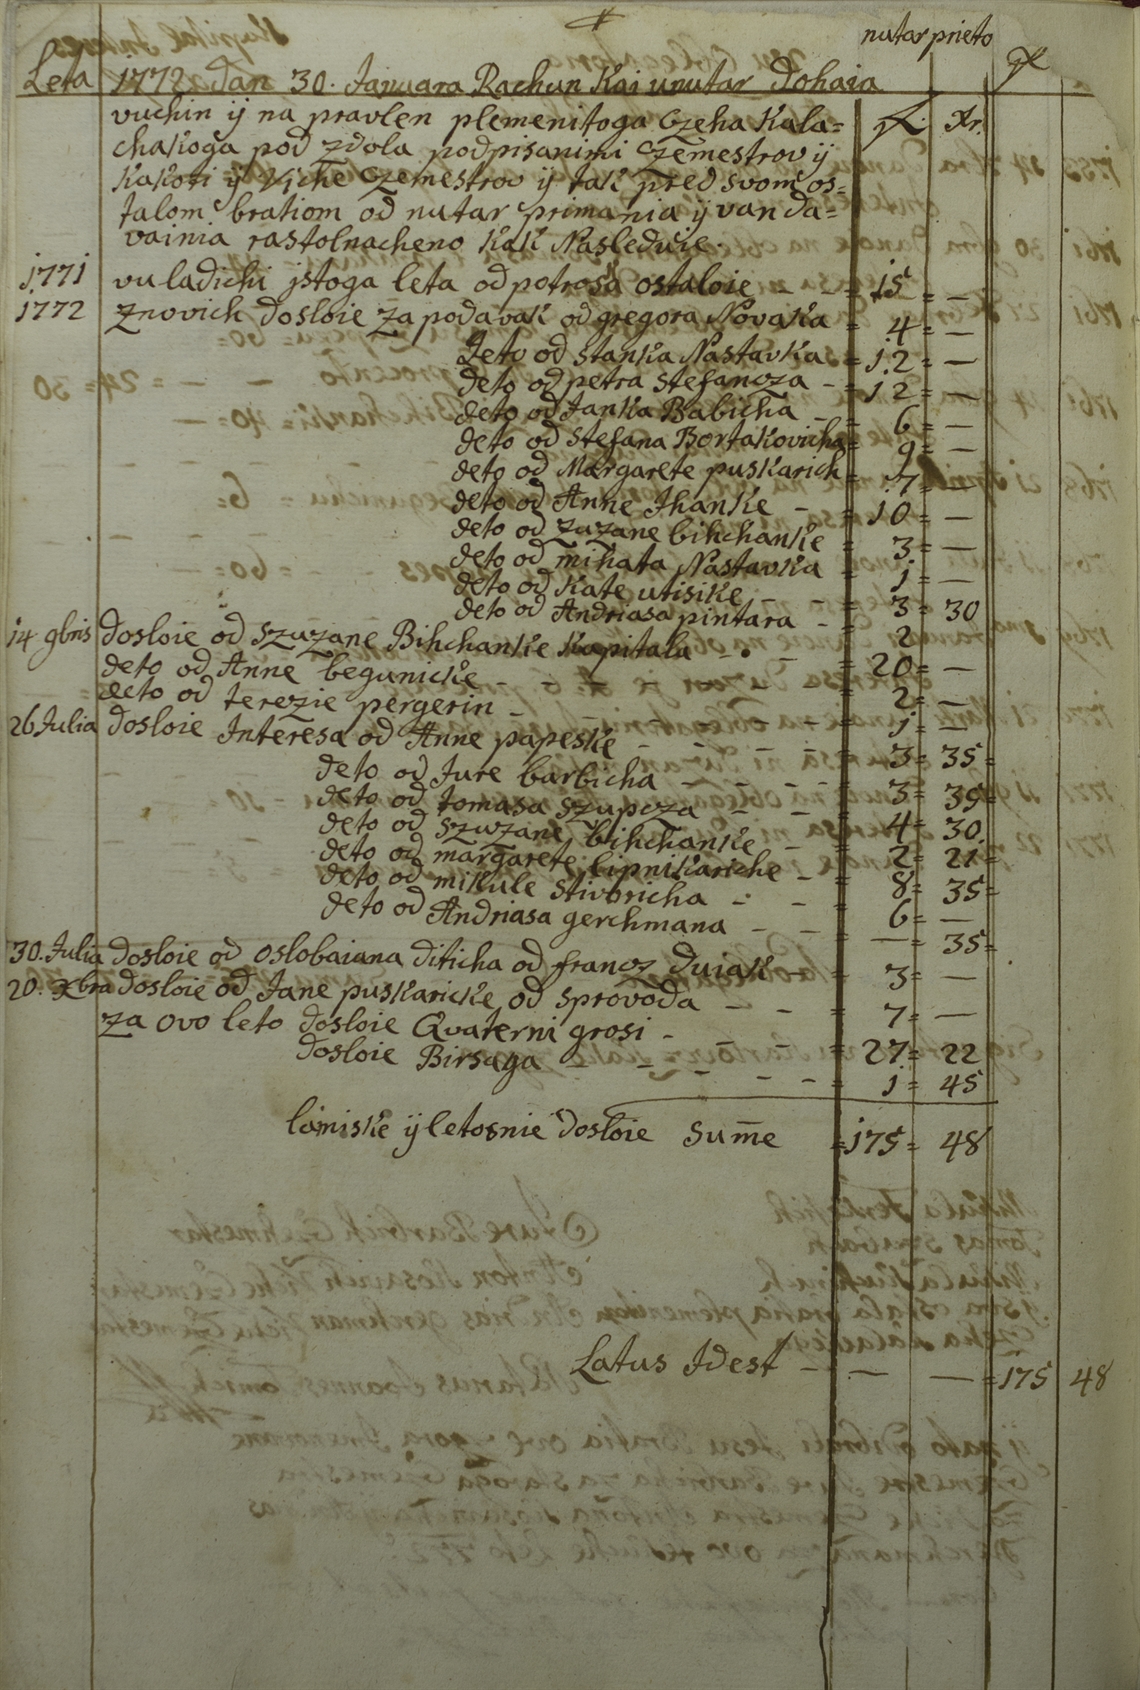 nutar prieto
Leta 1772 dan 30. Januara Rachun Kai unutar dohaia
vuchin ij na pravlen plemenitoga Czeha Kala= fl. Xr.
chakoga pod zdola podpisanimi Czemestrov ij
kakoti ij Viche Czemestrov ij tak pred svom os=
talom bratiom od nutar primania ij van da=
vainia rastolnacheno kak Nasleduie.
1771 vu ladichi istoga leta od potrosa ostaloie - - = 15 = —
1772 Znovich dosloie za podavak od gregora Novaka = 4 = —
deto od stanka Nastavka = 12 = —
deto od petra stefancza - = 12 = —
deto od Janka Babicha - = 6 = —
deto od stefana Bortakovicha = 9 = —
deto od Margarete puskarich = 7 = —
deto od Anne Jhanke - = 10 = —
deto od zuzane bihchanke = 3 = —
deto od mihata Nastavka = 1 = —
deto od Kate utisike - - = 3 = 30
deto od Andriasa pintara - = 2
14 9bris dosloie od Szuzane Bihchanke Kapitala - - = 20 = —
deto od Anne begunicke - - - 2 = —
deto od terezie pergerin - - 1 = —
26 Julia dosloie Interesa od Anne papeske - - - 3 = 35 =
deto od Jure barbicha - - - 3 = 35 =
deto od tomasa szupcza - - = 4 = 30
deto od szuzane bihchanke - = 2 = 21 =
deto od margarete lipnikariche - = 8 = 35 =
deto od mikule stivoricha - - = 6 = —
deto od Andriasa gerchmana - - = — = 35 =
30. Julia dosloie od oslobaiana diticha od francz duiak - = 3 = —
20. Xbra dosloie od Jane puskaricke od sprovoda - - = 7 = —
za ovo leto dosloie Quaterni grosi - - - = 27 = 22
dosloie Birsaga - - - - - = 1 = 45
lániske ij letosnie dosloie Sum̅e = 175 = 48
Latus Idest - - — — = 175 48